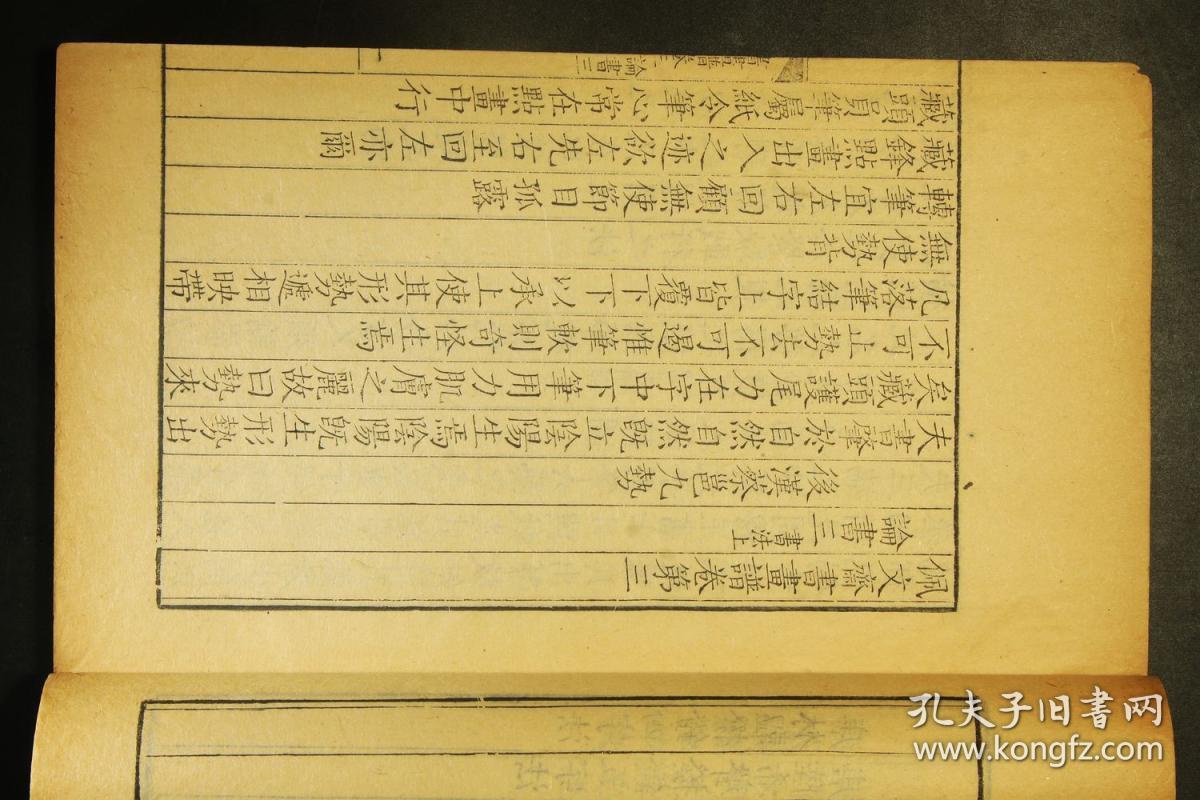 佩文齋書畫譜卷第三
論書三 書法上
後漢蔡邕九勢
夫書肇於自然自然旣立陰陽生焉陰陽旣生形勢出
矣藏頭護尾力在字中下筆用力肌膚之麗故曰勢來
不可止勢去不可遏惟筆軟則奇怪生焉
凡落筆結字上皆覆下下以承上使其形勢遞相映帶
無使勢背
轉筆宜左右回顧無使節目孤露
藏鋒點畫出入之迹欲左先右至回左亦爾
藏頭員筆屬紙令筆心常在點畫中行
論書三
一
孔夫子旧书网
www.kongfz.com